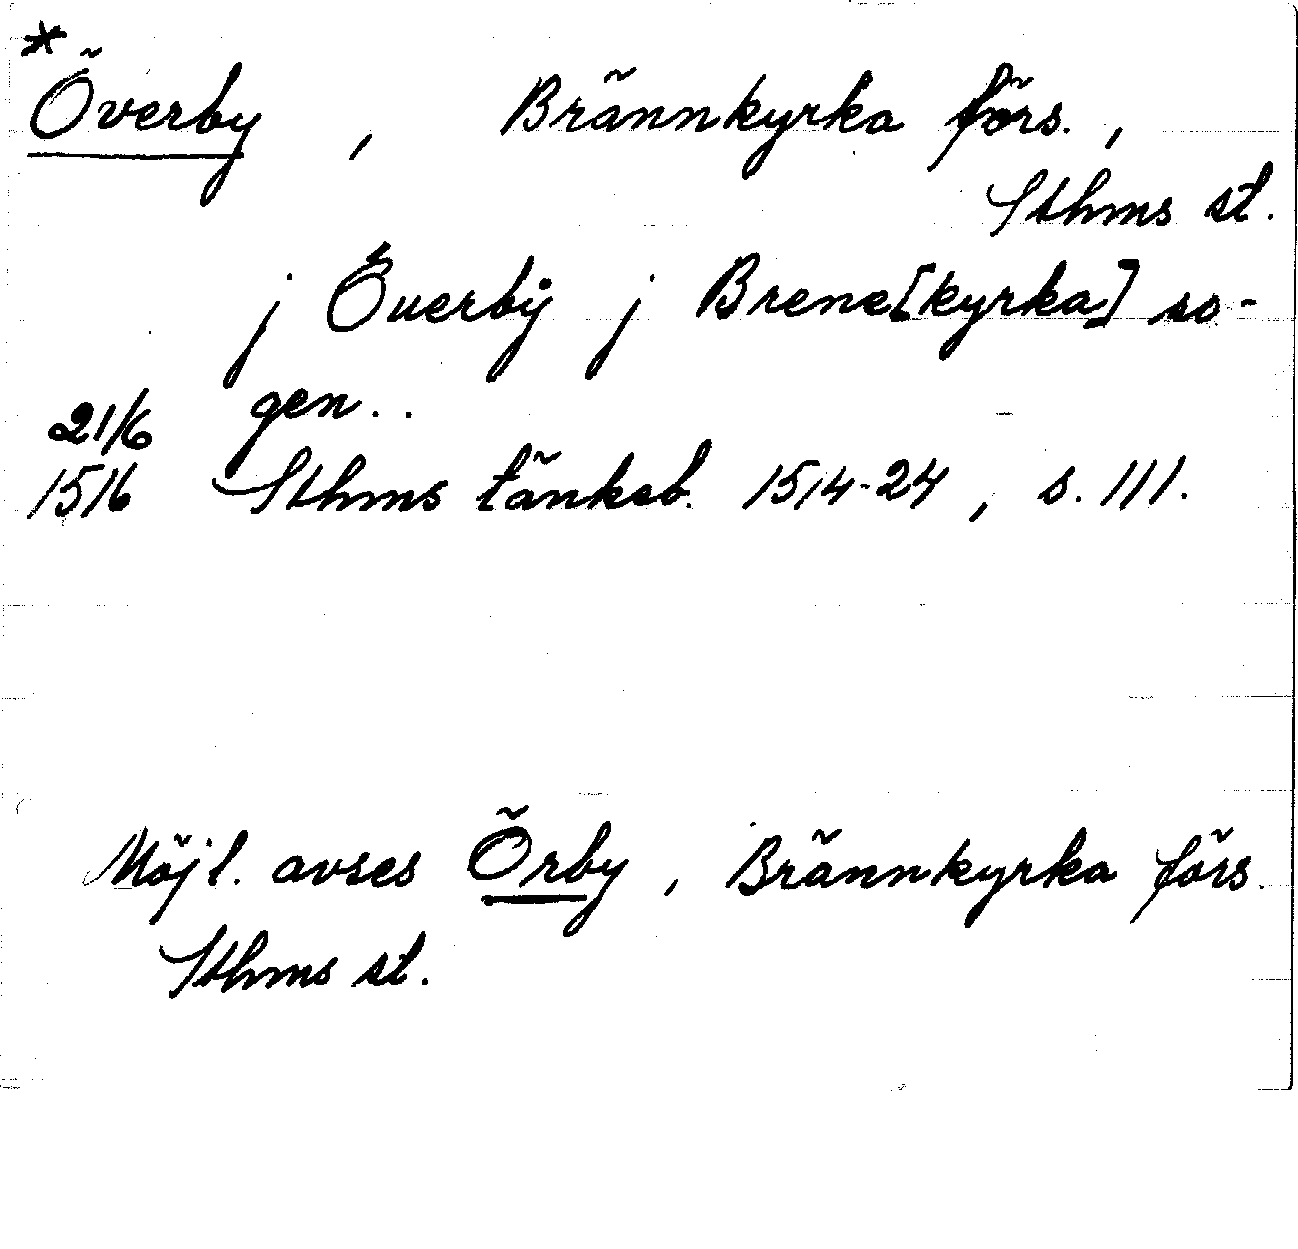 *
Överby, Brännkyrka förs.,
Sthms st.
j Öuerbÿ j Brene[kyrka] so-
21/6 gen..
1516 Sthms tänkeb. 1514-24, s. 111.
Möjl. avses Örby, Brännkyrka förs.
Sthms st.